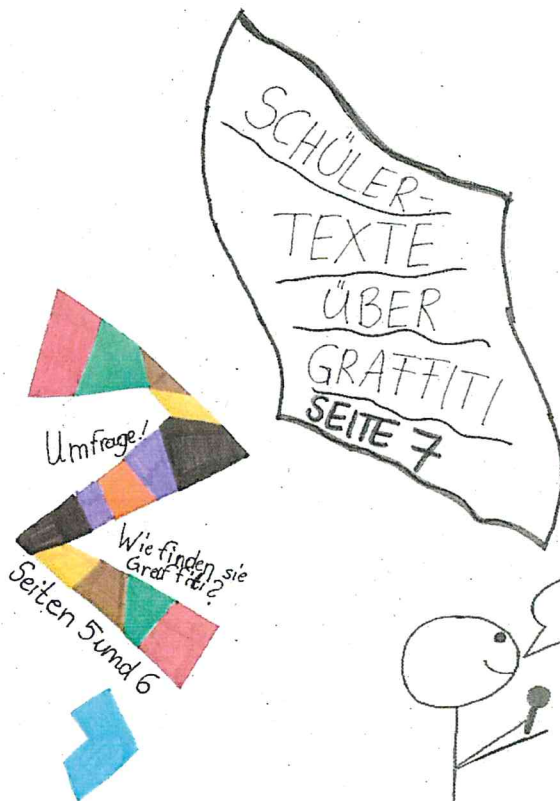 SCHÜLER-
TEXTE
ÜBER
GRAFFITI
SEITE 7
Umfrage!
Wie finden sie
Graffiti?
Seiten 5 und 6